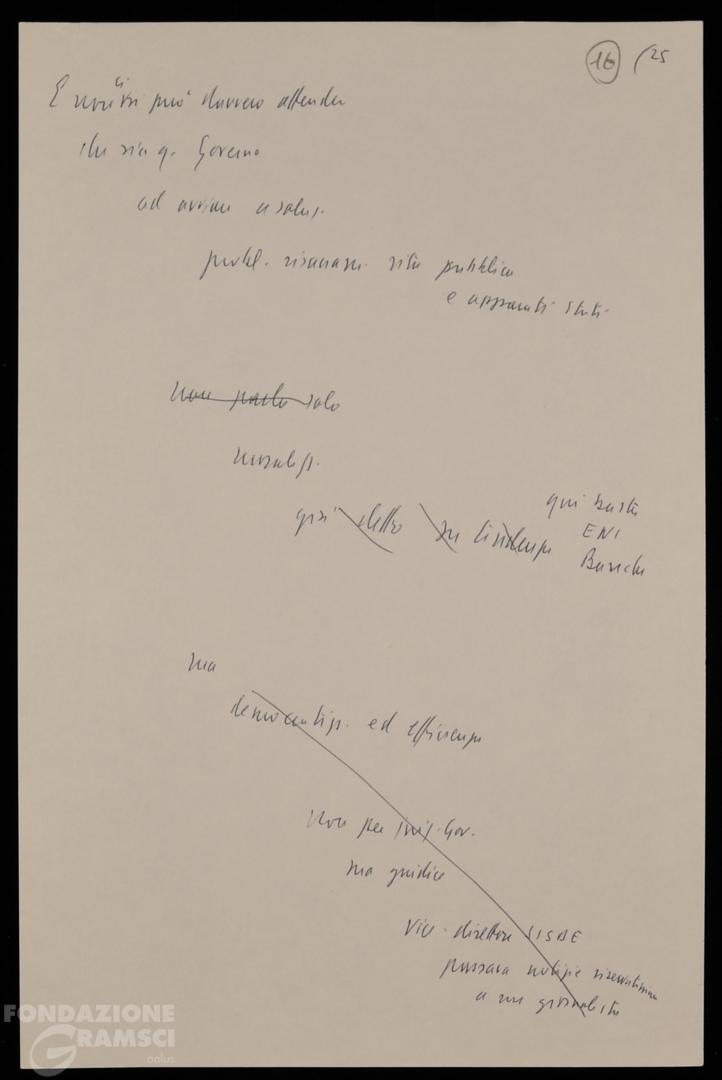 16 /25
E non ci si può davvero attender
che sia q. Governo
ad avviare a soluz.
probl. risanam. vita pubblica
e apparati Stato
non parlo solo
moralizz.
già detto su
qui basta
ENI
Banche
ma
democratizz. ed efficienza
non per iniz. Gov.
ma giudice
Vice-direttore SISDE
passava notizie riservatissime
a un giornalista
FONDAZIONE
GRAMSCI
onlus